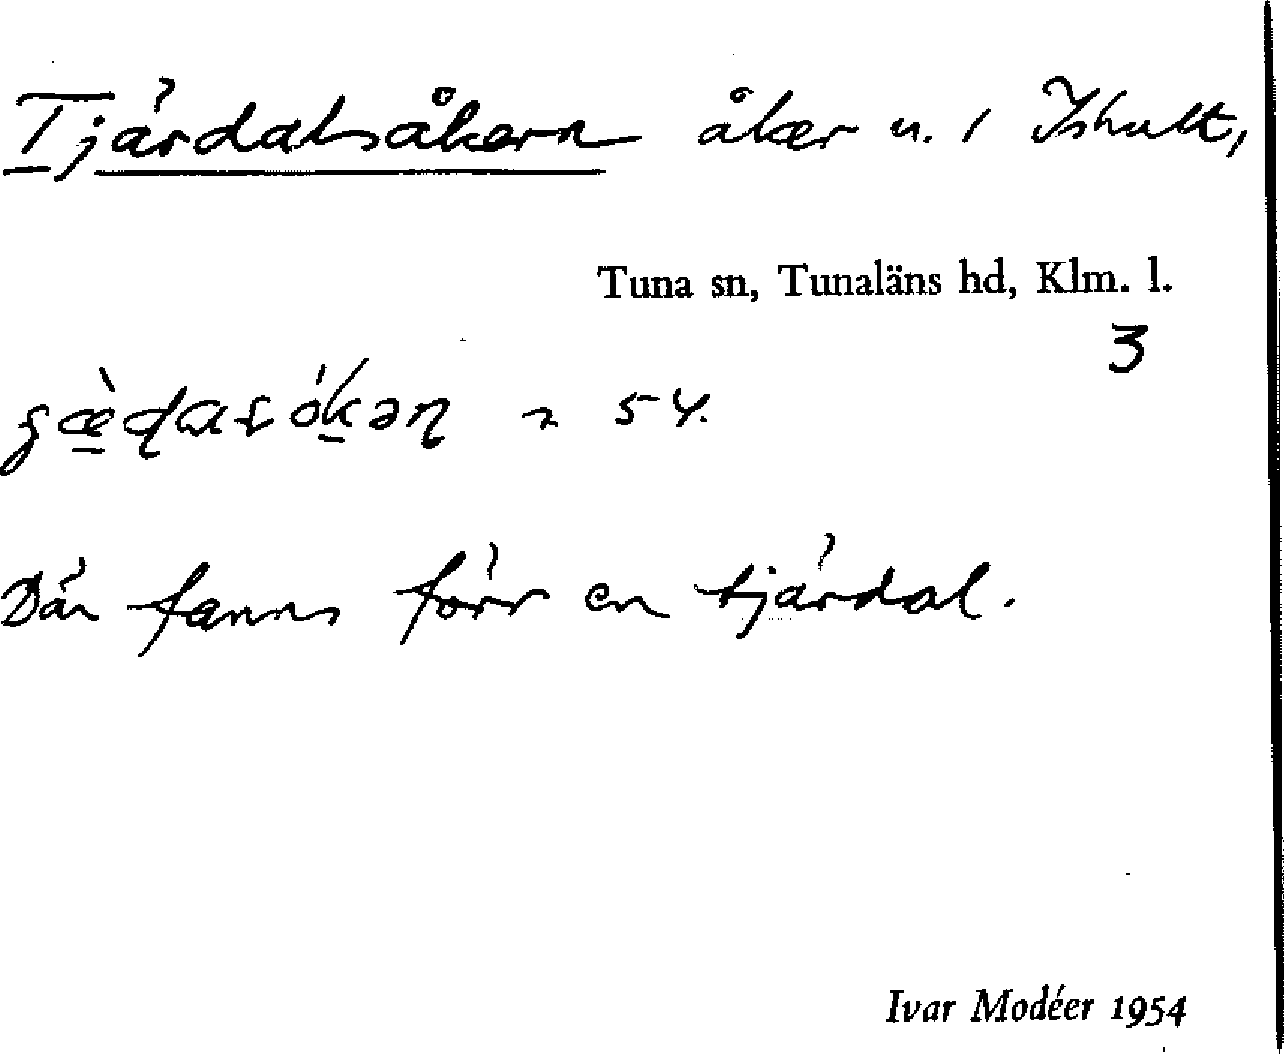 Tjärdalsåkern åker u. 1 Ishult,
Tuna sn, Tunaläns hd, Klm. l.
3
54.
Där fanns förr en tjärdal.
Ivar Modéer 1954